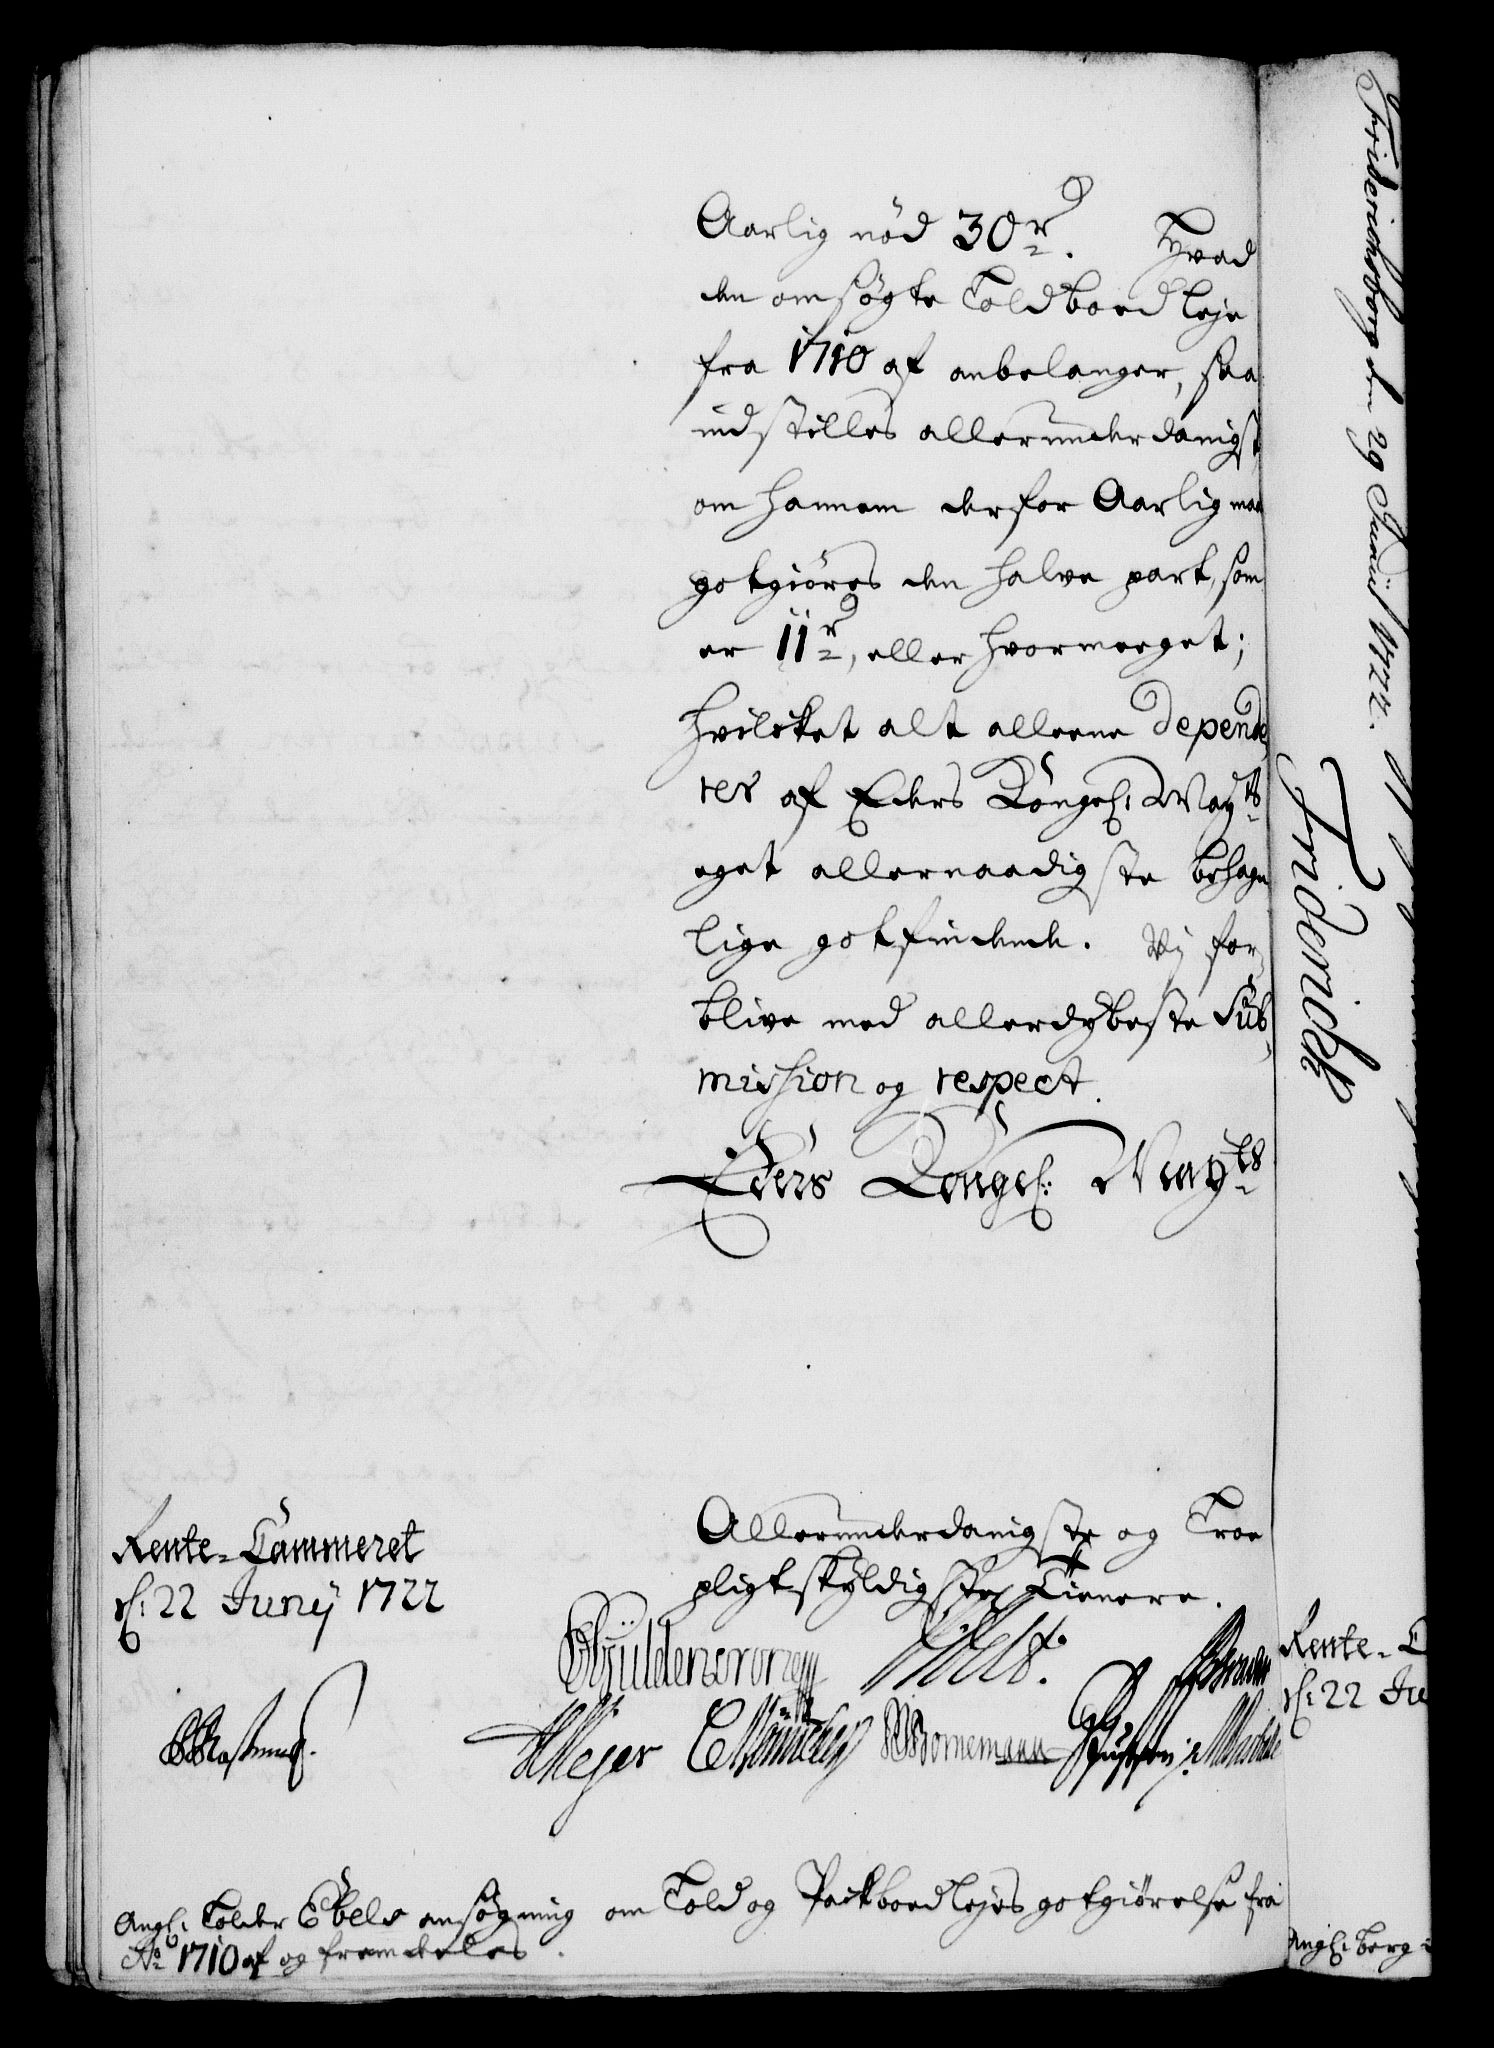 Aarlig nød 30 rd. Hvad
den omsøgte Toldboed leje
fra 1710 af anbelanger, saa
indstilles allerunderdanigst
om hannem derfor Aarlig maa
gotgiøres den halve part, som
er 11 rd, eller hvormeeget;
hvilcket alt alleene depende
rer af Eders Kongel: Mayts
eget allernaadigste behage
lige gotfindende. Vj for
blive med allerdybeste Sub
mission og respect.
Eders Kongel: Mayts
Allerunderdanigste og Troe
pligtskyldigste Tienere.
Rente-Cammeret
d: 22 Junij 1722
Gyldencrone
Meyer
WBornemann
Angl: Tolder Ebels ansøgning om Told og Packboed lejes gotgiørelse fra
Ao 1710 af og fremdeeles.
Friderichsberg den 29 Junii 1722.
Friderich
Rente-C
d: 22 Ju
Angl: berg